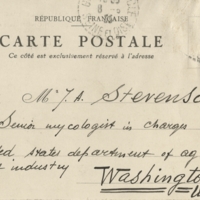 RÉPUBLIQUE FRANÇAISE
CARTE POSTALE
Ce côté est exclusivement réservé à l'adresse
Mr J. A. Stevenso
Senior mycologist in charges
ed states department of ag
e industry
Washington